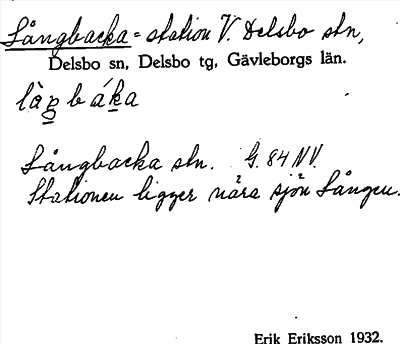 Långbacka = station V. Delsbo stn,
Delsbo sn, Delsbo tg, Gävleborgs län.
làŋbáka
Långbacka stn. G. 84 NV.
Stationen ligger nära sjön Lången.
Erik Eriksson 1932.